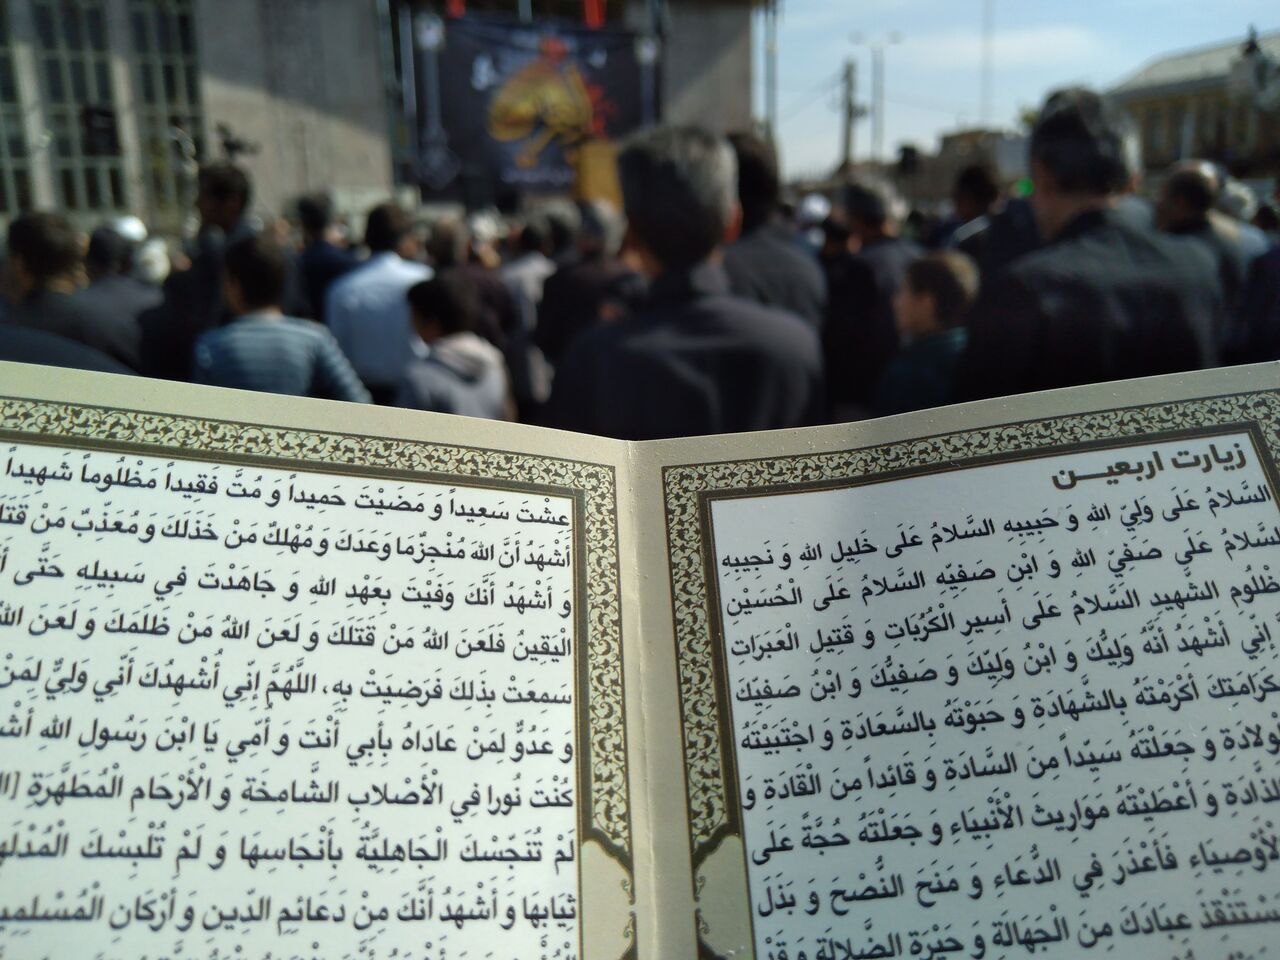 زیارت اربعین
السَّلامُ عَلى وَلِيِّ اللهِ وَ حَبِيبِهِ السَّلامُ عَلَى خَلِيلِ اللهِ وَ نَجِيبِهِ
السَّلامُ عَلى صَفِيِّ اللهِ وَ ابْنِ صَفِيِّهِ السَّلامُ عَلى الْحُسَيْنِ
الشَّهِيدِ السَّلامُ عَلى أَسِيرِ الْكُرُبَاتِ وَ قَتِيلِ الْعَبَرَاتِ
إِنِّي أَشْهَدُ أَنَّهُ وَلِيُّكَ وَ ابْنُ وَلِيِّكَ وَ صَفِيُّكَ وَ ابْنُ صَفِيِّكَ
أَكْرَمْتَهُ بِالشَّهَادَةِ وَ حَبَوْتَهُ بِالسَّعَادَةِ وَ اجْتَبَيْتَهُ
وَ جَعَلْتَهُ سَيِّداً مِنَ السَّادَةِ وَ قَائِداً مِنَ الْقَادَةِ وَ
وَ أَعْطَيْتَهُ مَوَارِيثَ الْأَنْبِيَاءِ وَ جَعَلْتَهُ حُجَّةً عَلَى
فَأَعْذَرَ فِي الدُّعَاءِ وَ مَنَحَ النُّصْحَ وَ بَذَلَ
عِبَادَكَ مِنَ الْجَهَالَةِ وَ حَيْرَةِ الضَّلالَةِ وَ قَدْ
عِشْتَ سَعِيداً وَ مَضَيْتَ حَمِيداً وَ مُتَّ فَقِيداً مَظْلُوماً شَهِيداً
أَشْهَدُ أَنَّ اللهَ مُنْجِزٌ مَا وَعَدَكَ وَ مُهْلِكٌ مَنْ خَذَلَكَ وَ مُعَذِّبٌ مَنْ
وَ أَشْهَدُ أَنَّكَ وَفَيْتَ بِعَهْدِ اللهِ وَ جَاهَدْتَ فِي سَبِيلِهِ حَتَّى
الْيَقِينُ فَلَعَنَ اللهُ مَنْ قَتَلَكَ وَ لَعَنَ اللهُ مَنْ ظَلَمَكَ وَ لَعَنَ اللهُ
سَمِعَتْ بِذَلِكَ فَرَضِيَتْ بِهِ، اللَّهُمَّ إِنِّي أُشْهِدُكَ أَنِّي وَلِيٌّ لِمَنْ
وَ عَدُوٌّ لِمَنْ عَادَاهُ بِأَبِي أَنْتَ وَ أُمِّي يَا ابْنَ رَسُولِ اللهِ
كُنْتَ نُورا فِي الْأَصْلابِ الشَّامِخَةِ وَ الْأَرْحَامِ الْمُطَهَّرَةِ
لَمْ تُنَجِّسْكَ الْجَاهِلِيَّةُ بِأَنْجَاسِهَا وَ لَمْ تُلْبِسْكَ
ثِيَابِهَا وَ أَشْهَدُ أَنَّكَ مِنْ دَعَائِمِ الدِّينِ وَ أَرْكَانِ